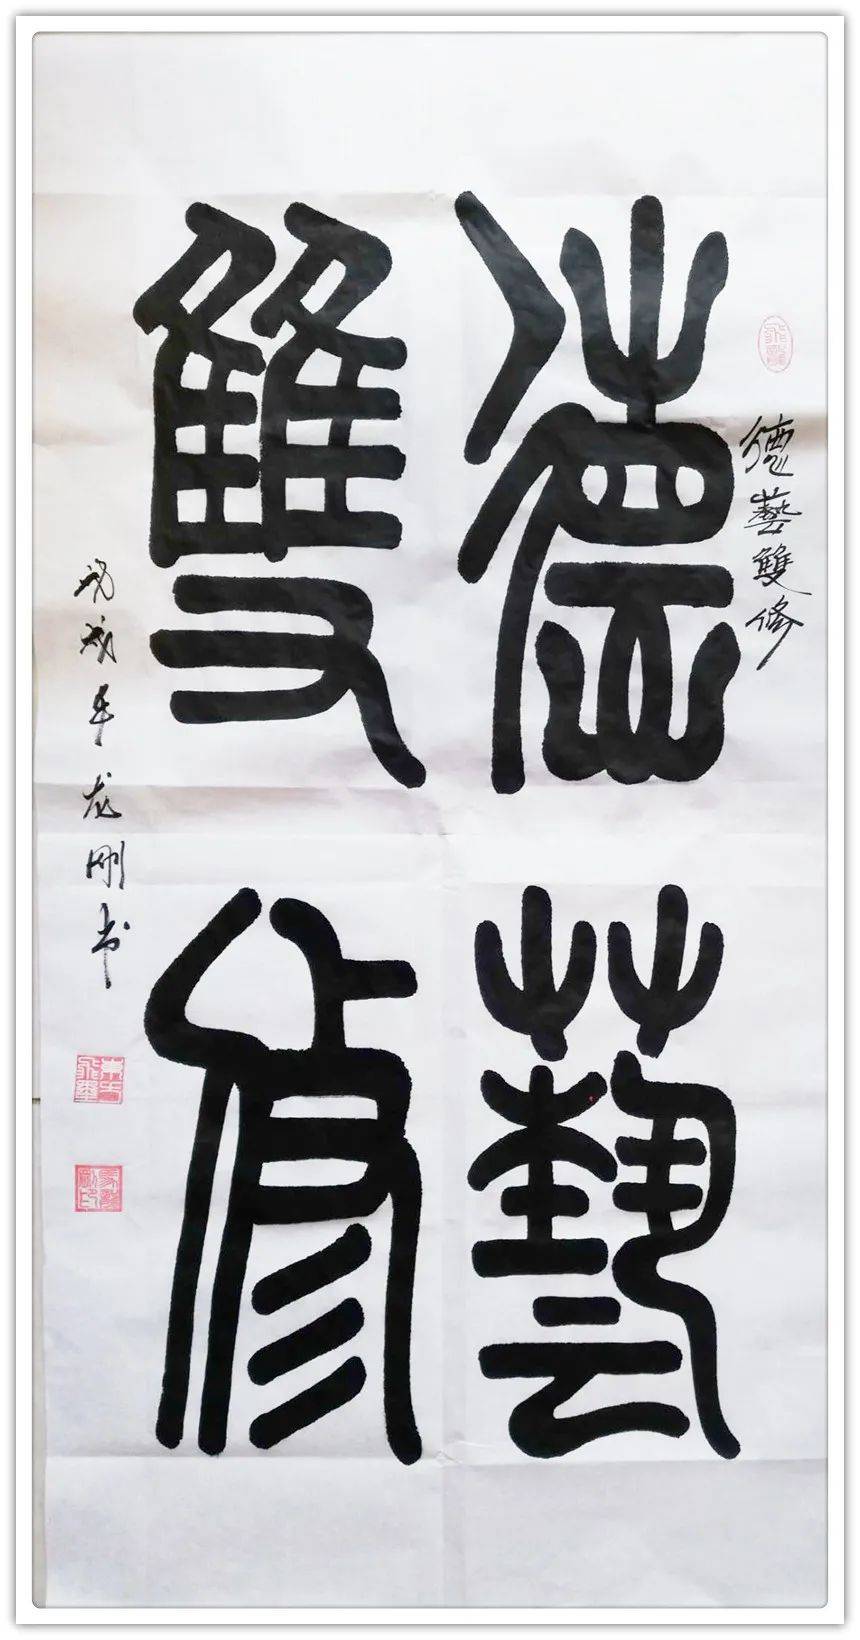 德藝
雙修
德藝雙修
戊戌年龙刚书